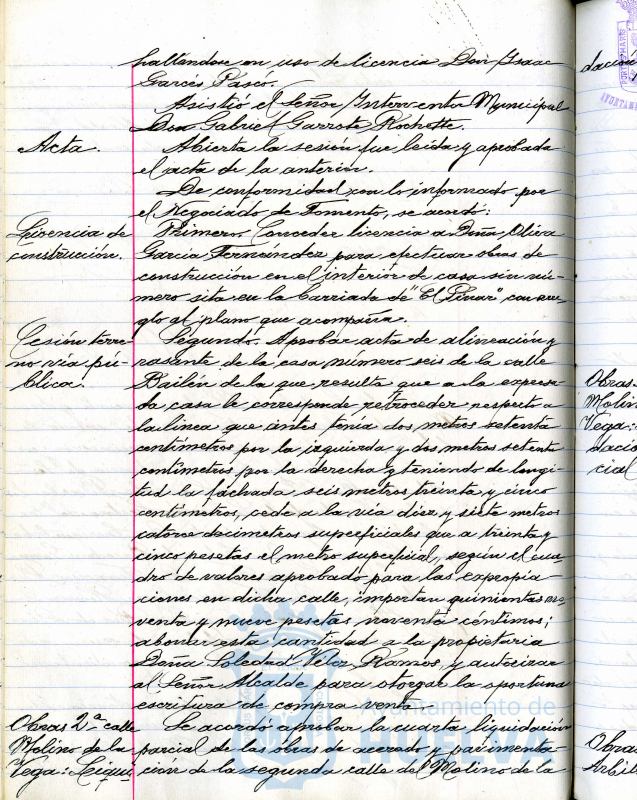 hallándose en uso de licencia Don Isaac
Garcés Pascó.
Asistió el Señor Interventor Municipal
Don Gabriel Garrote Rochette.
Acta.
Abierta la sesión fue leida y aprobada
el acta de la anterior.
De conformidad con lo informado por
el Negociado de Fomento, se acordó:
Licencia de
construcción.
Primero. Conceder licencia a Doña Oliva
García Fernández para efectuar obras de
construcción en el interior de casa sin nú-
mero sita en la barriada de "El Pinar" con arre-
glo al plano que acompaña.
Cesión terre-
no vía pú-
blica.
Segundo. Aprobar acta de alineación y
rasante de la casa número seis de la calle
Bailén de la que resulta que a la expresa-
da casa le corresponde retroceder respecto a
la línea que antes tenía dos metros setenta
centímetros por la izquierda y dos metros setenta
centímetros por la derecha y teniendo de longi-
tud la fachada seis metros treinta y cinco
centímetros, cede a la vía diez y siete metros
catorce decímetros superficiales que a treinta y
cinco pesetas el metro superficial, según el cua-
dro de valores aprobado para las expropia-
ciones en dicha calle, importan quinientas no-
venta y nueve pesetas noventa céntimos;
abonar esta cantidad a la propietaria
Doña Soledad Vélez Ramos, y autorizar
al Señor Alcalde para otorgar la oportuna
escritura de compra venta.
Obras 2ª calle
Molino de la
Vega: Liqui
Se acordó aprobar la cuarta liquidación
parcial de las obras de acerado y pavimenta-
ción de la segunda calle del Molino de la
Ayuntamiento de
HUELVA
dación
Obras
Molin
Vega:
dacio
cial
Obras
Arbit